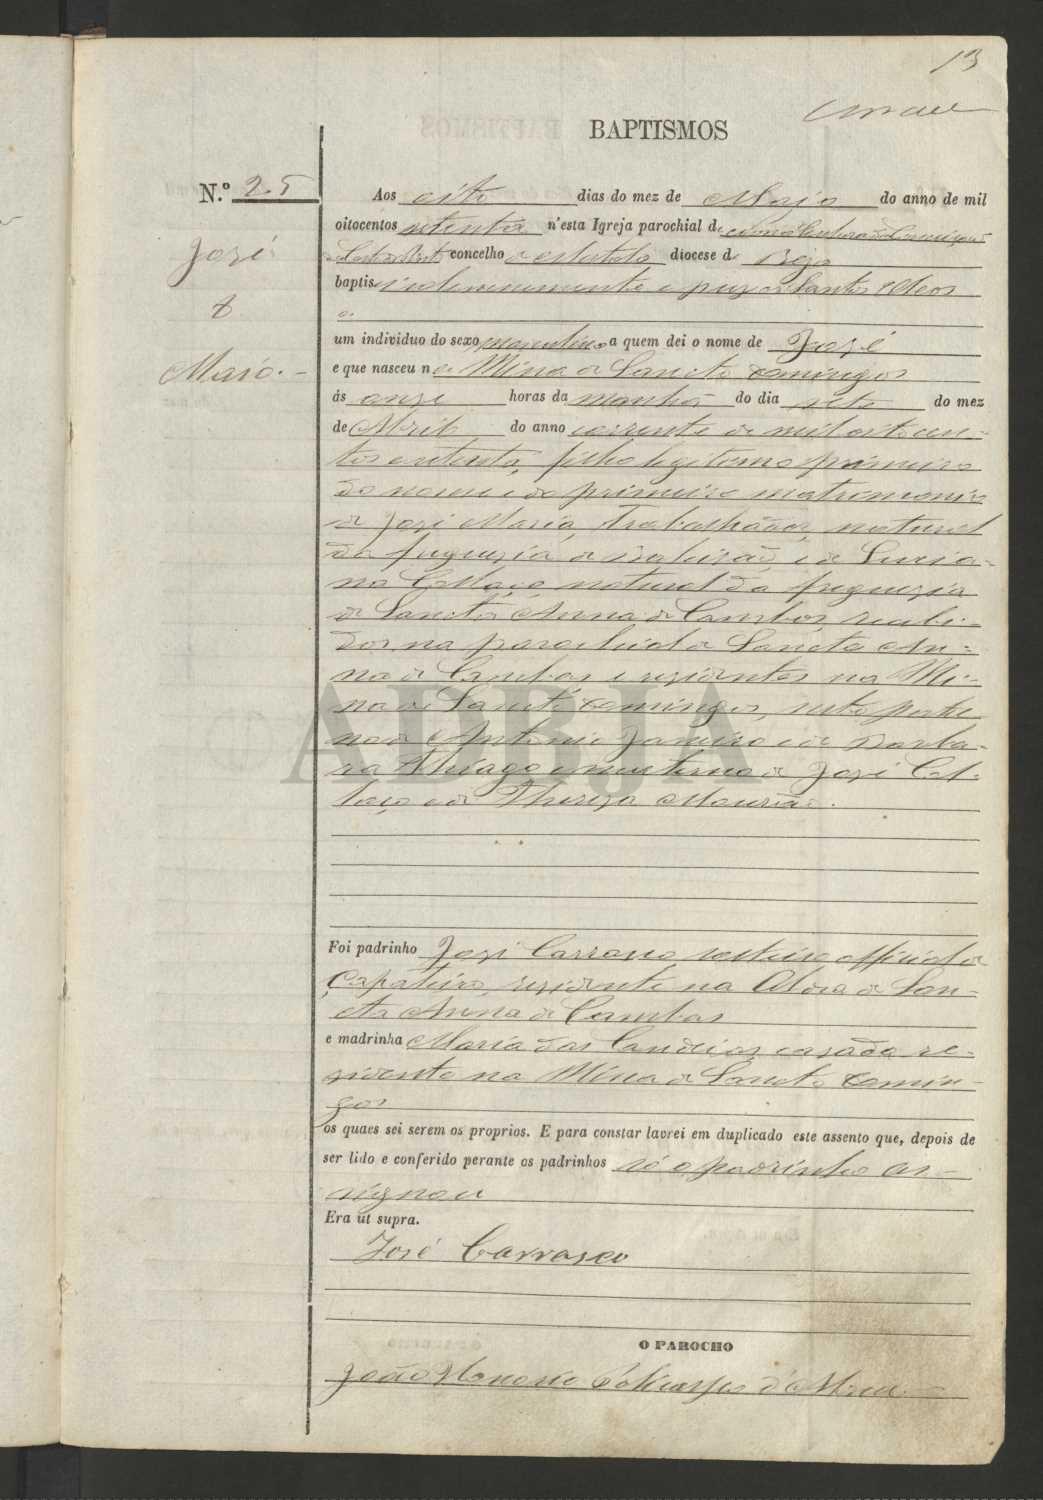 13
BAPTISMOS
N.º 25
José
8
Maio. -
Aos oito dias do mez de Maio do anno de mil
oitocentos setenta n'esta Igreja parochial de
concelho diocese d Beja
baptisei solemnemente e puz os Santos Oleos
um individuo do sexo masculino a quem dei o nome de José
e que nasceu na Mina de Sancto Domingos
ás onze horas da manhã do dia sete do mez
de Abril do anno corrente de mil oitocen-
tos e setenta, filho legitimo primeiro
do nome e do primeiro matrimonio
de José Maria, Trabalhador, natural
da freguezia de e de Lucia-
na Collaço natural da freguezia
de Sancta Anna de Cambas, recebi-
dos na parochial de Sancta An-
na de Cambas e rezidentes na Mi-
na de Sancto Domingos, neto pater-
no de Antonio Janeiro e de Barba-
ra Thiago e materno de José Col-
laço e de Thereza Mourão.
Foi padrinho José Carrasco solteiro official de
Çapateiro, rezidente na Aldea de San-
cta Anna de Cambas
e madrinha Maria das Candeias cazada re-
zidente na Mina de Sancto Domin-
gos
os quaes sei serem os proprios. E para constar lavrei em duplicado este assento que, depois de
ser lido e conferido perante os padrinhos só o padrinho as-
signou
Era ut supra.
José Carrasco
O PAROCHO
João
ADBJA